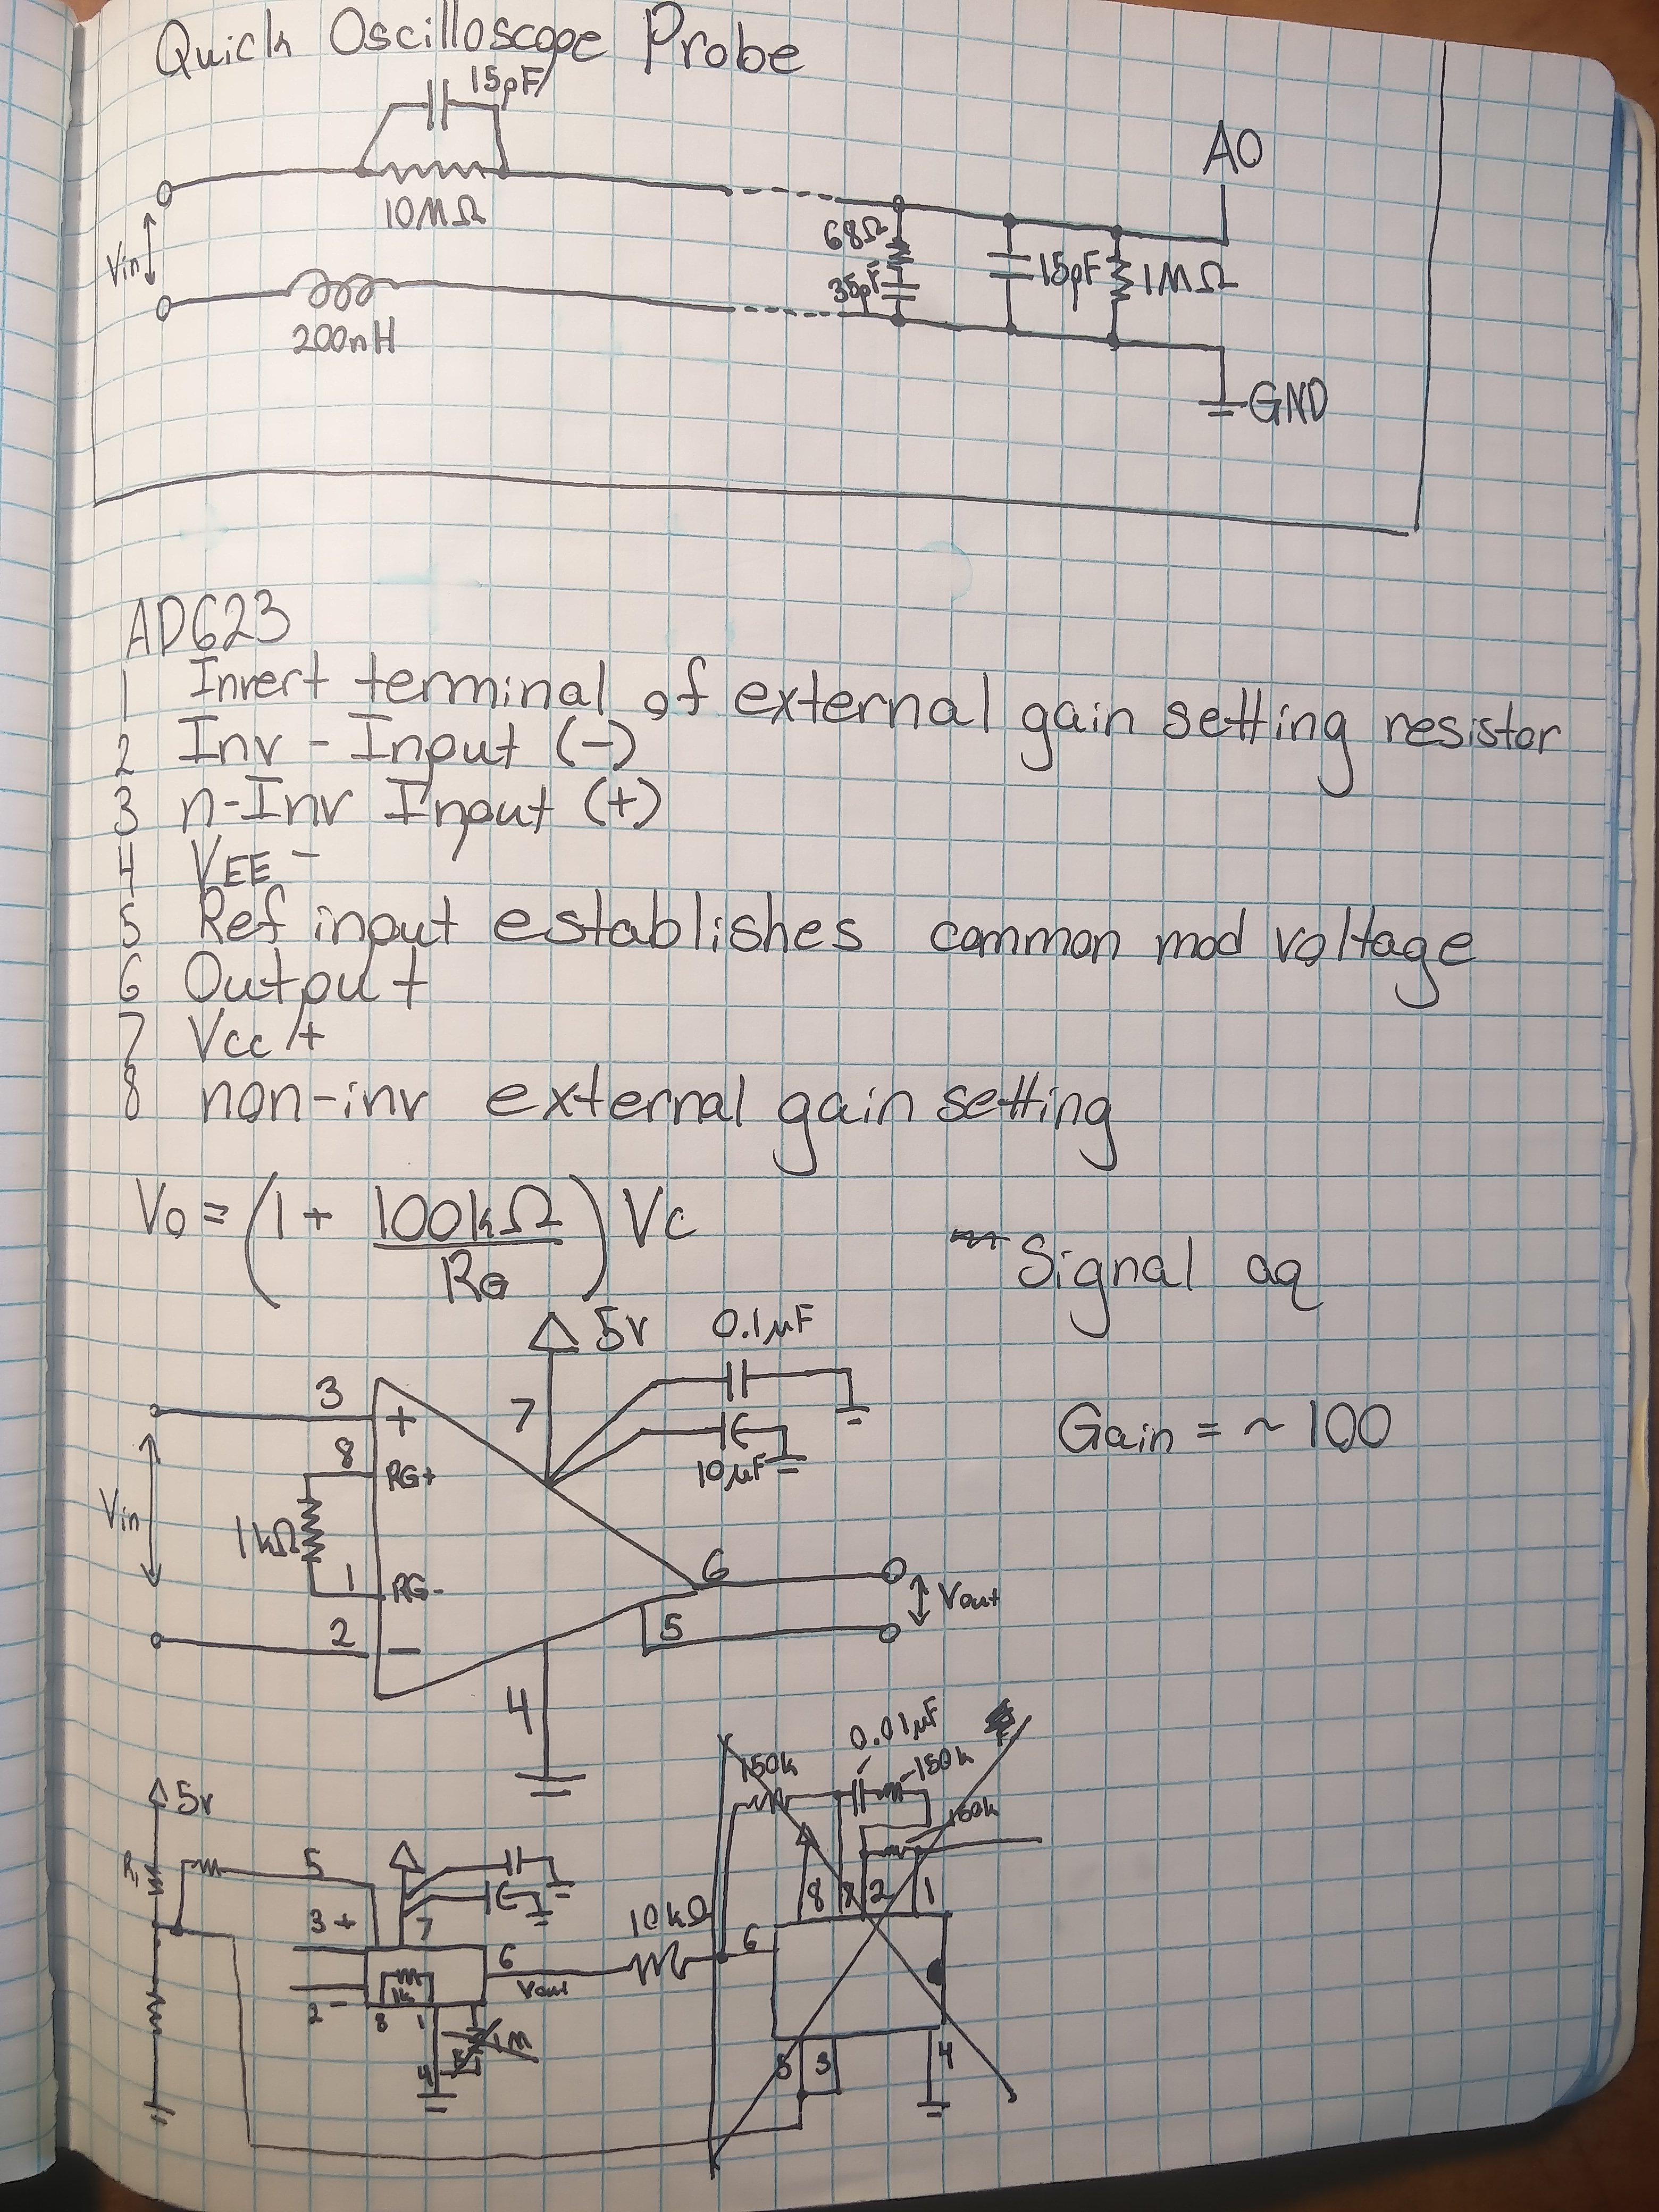 Quick Oscilloscope Probe
15pF
10MΩ
Vin
200nH
68Ω
35pF
15pF
1MΩ
A0
GND
AD623
1 Invert terminal of external gain setting resistor
2 Inv - Input (-)
3 n-Inv Input (+)
4 VEE -
5 Ref input establishes common mod voltage
6 Output
7 Vcc +
8 non-inv external gain setting
Vo = (1 + 100kΩ / RG) Vc
Signal aq
5v 0.1μF
3 + 7
8 RG+ 10μF
Gain = ~ 100
Vin
1kΩ
1 RG-
6
Vout
2 - 5
4
0.01μF
150k 150k
5v
150k
R1
5
3 + 7
8 7 2 1
10kΩ
6
6
Vout
1k
2 -
8 1
1M
4
5 3 4